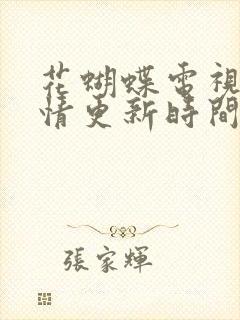 花蝴蝶電視
情更新時間
張家輝